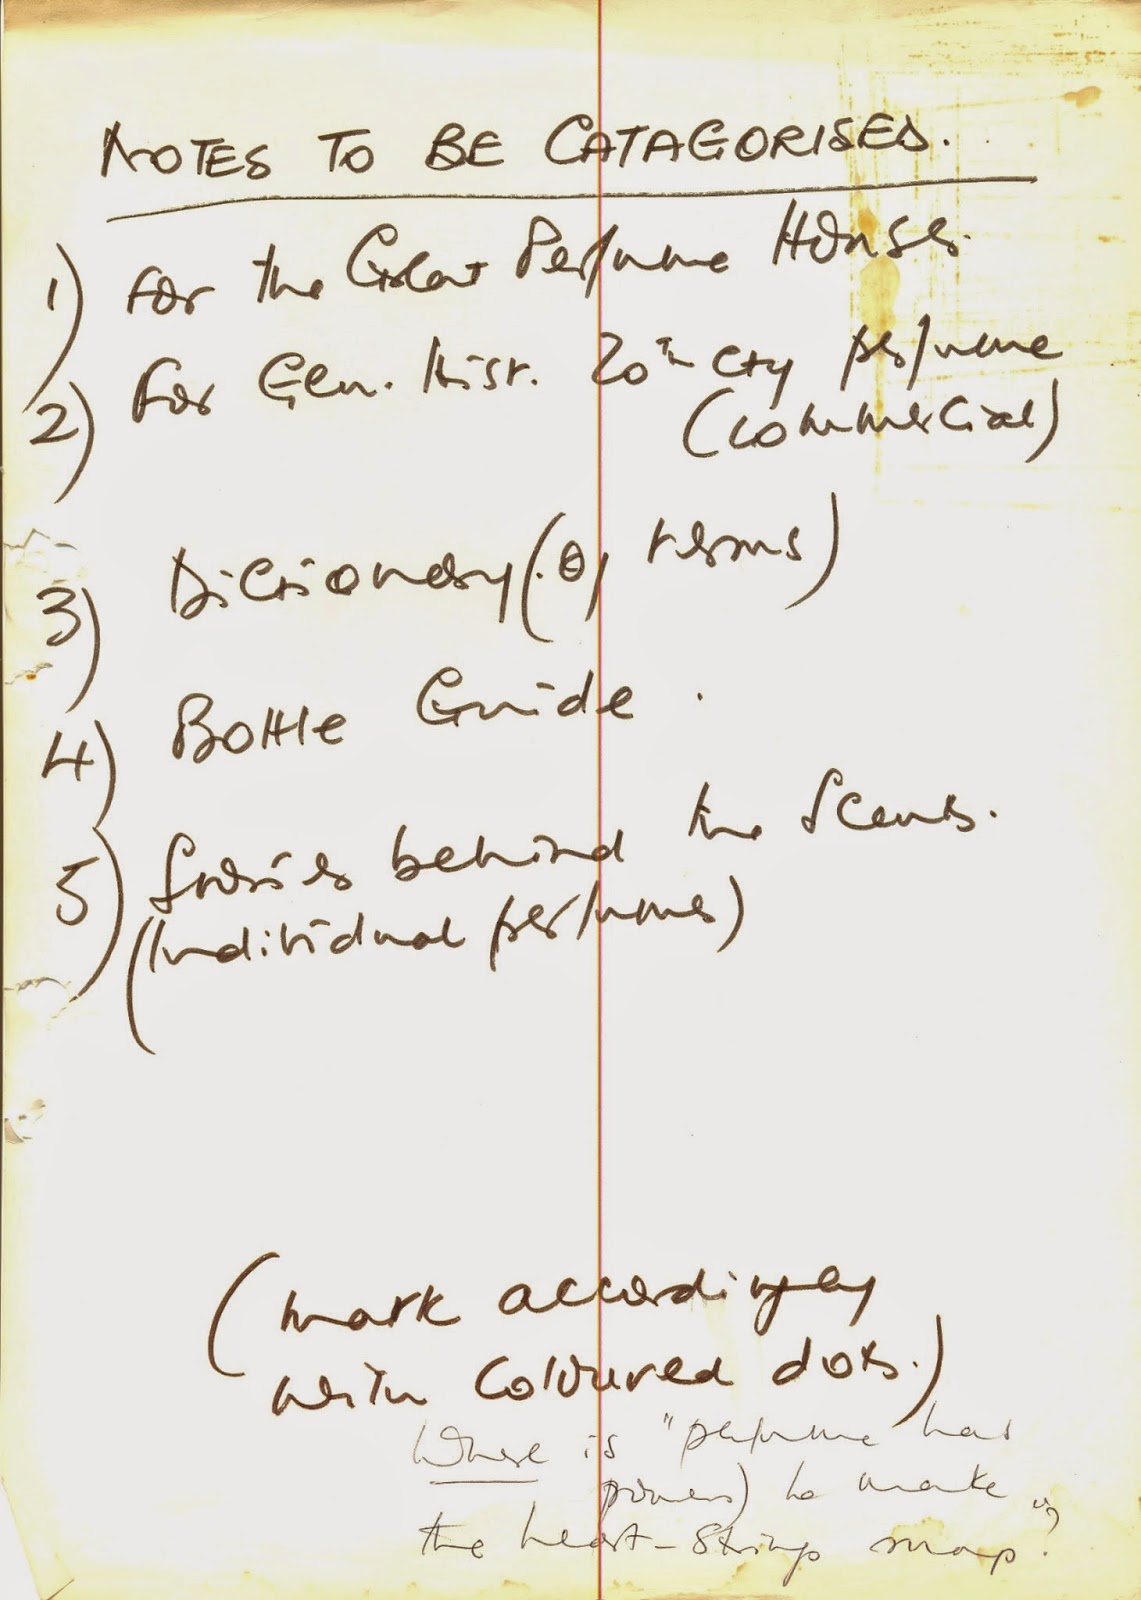 NOTES TO BE CATAGORISED.
1) For the Great Perfume Houses.
2) For Gen. Hist. 20th Cty perfume
(commercial)
3) Dictionary (of terms)
4) Bottle Guide.
5) Stories behind the Scents.
(Individual perfumes)
(mark accordingly
with coloured dots.)
Where is "perfume has
power) to make
the heart-strings snap"?